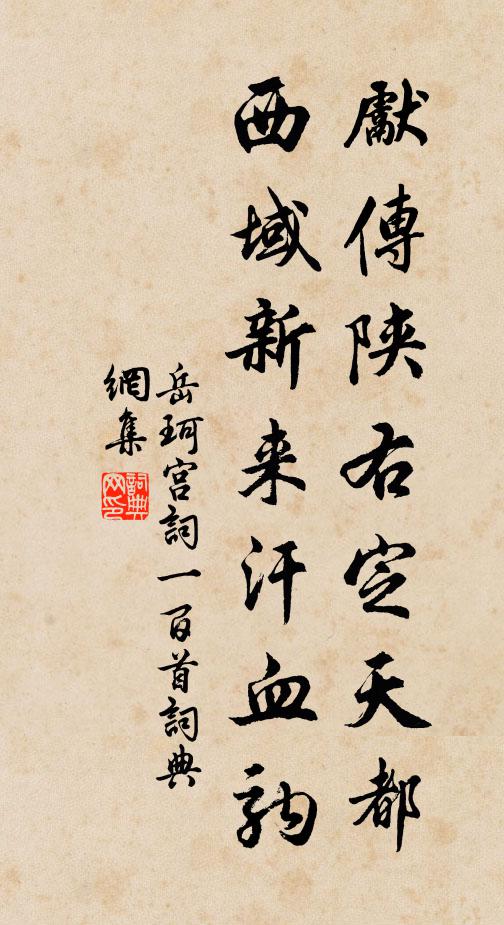 獻傳陝右定天都
西域新来汗血駒
岳珂宫詞一百首詞典
網集
詞典
网印